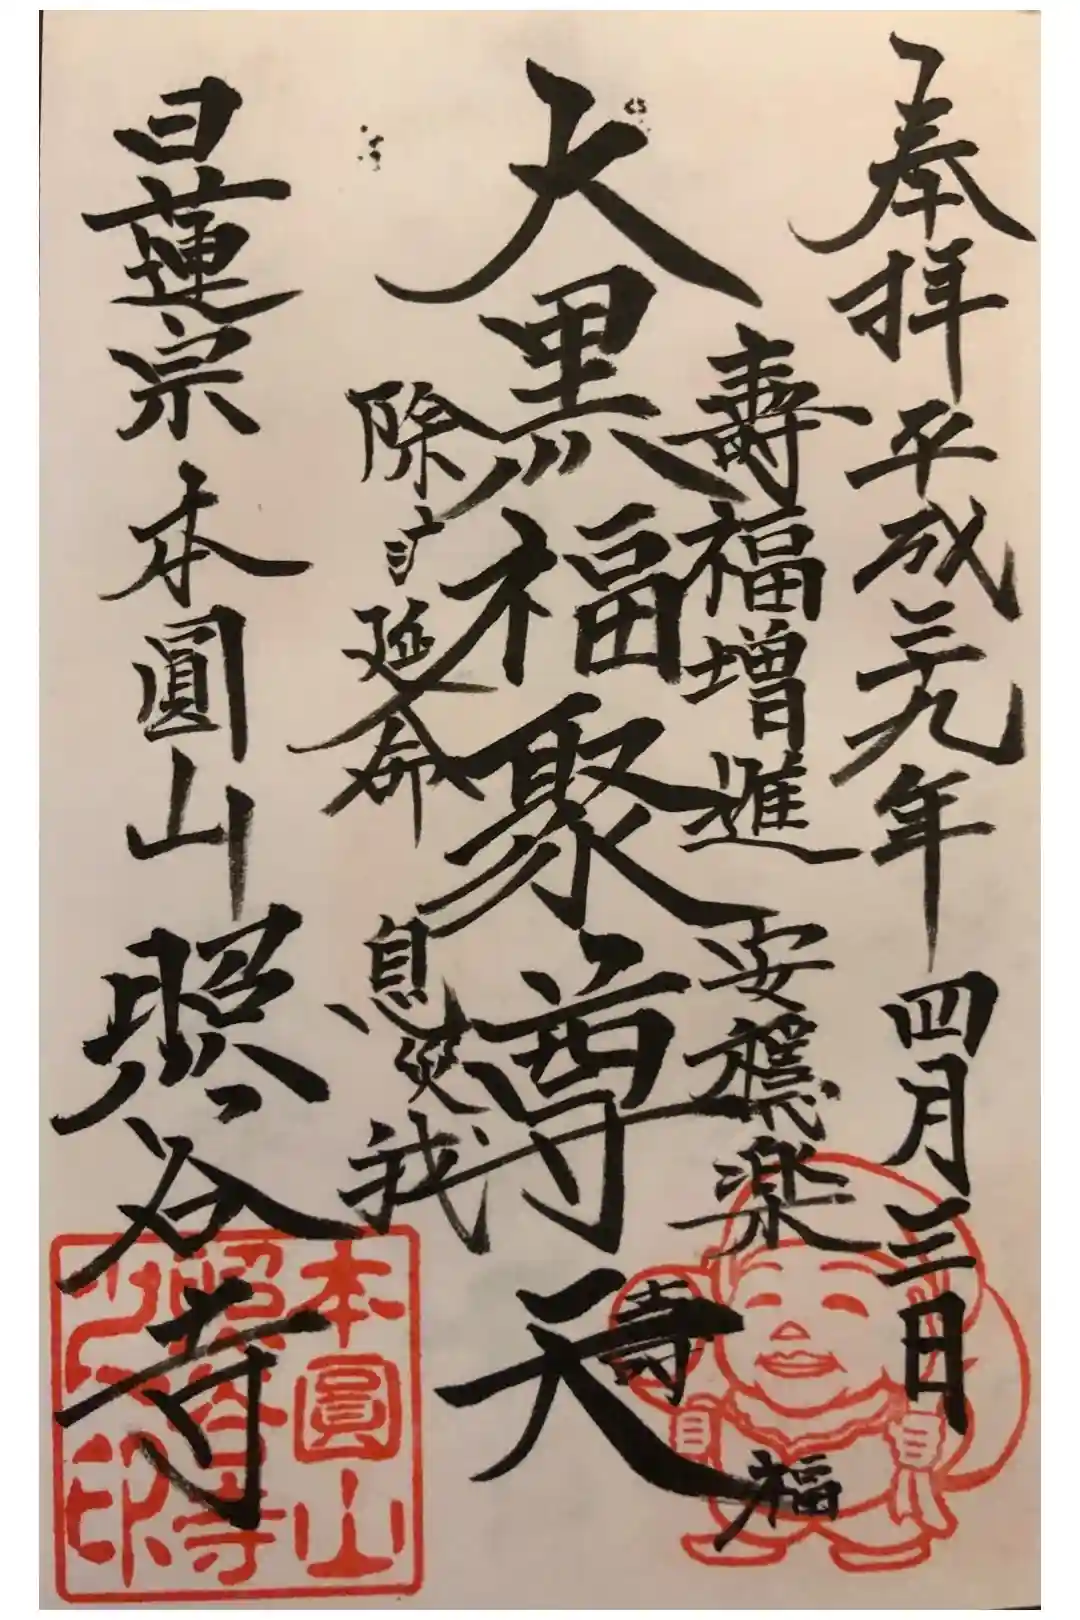 奉拝 平成二十九年 四月三日
壽福増進 安穏楽
壽
福
大黒福聚尊天
除 延命 息災
日蓮宗 本圓山 照谷寺
本圓山
照谷寺
之印